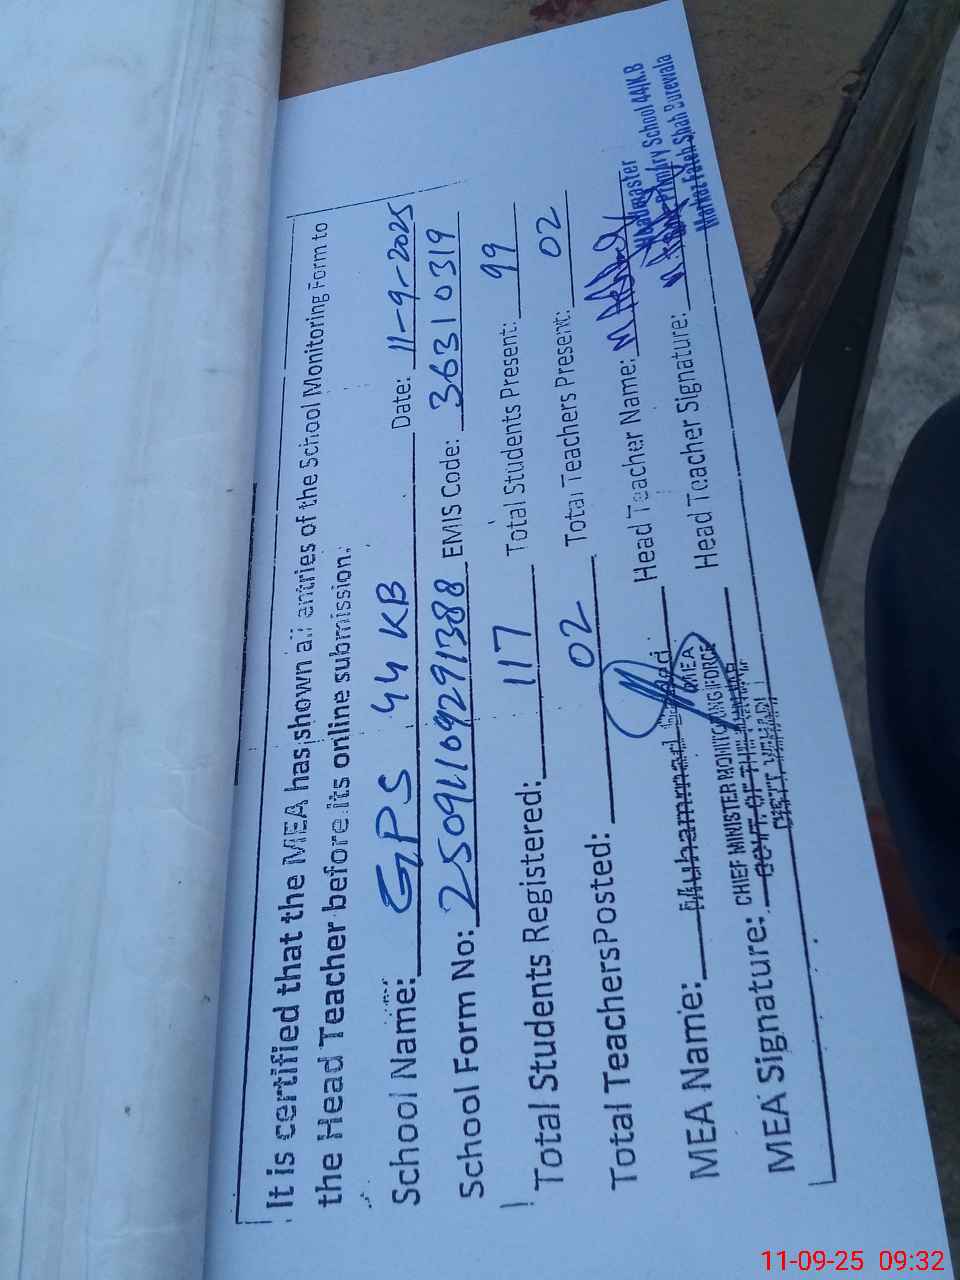 It is certified that the MEA has shown all entries of the School Monitoring Form to
the Head Teacher before its online submission.
School Name: GPS 44 KB Date: 11-9-2025
School Form No: 25091169291388 EMIS Code: 36310319
Total Students Registered: 117 Total Students Present: 99
Total Teachers Posted: 02 Total Teachers Present: 02
MEA Name: Muhammad Head Teacher Name:
(MEA)
CHIEF MINISTER MONITORING FORCE
MEA Signature: GOVT. OF THE PUNJAB Head Teacher Signature:
DISTT. VEHARI
Headmaster
Primary School 44/K.B
Markaz Fateh Shah Burewala
11-09-25 09:32